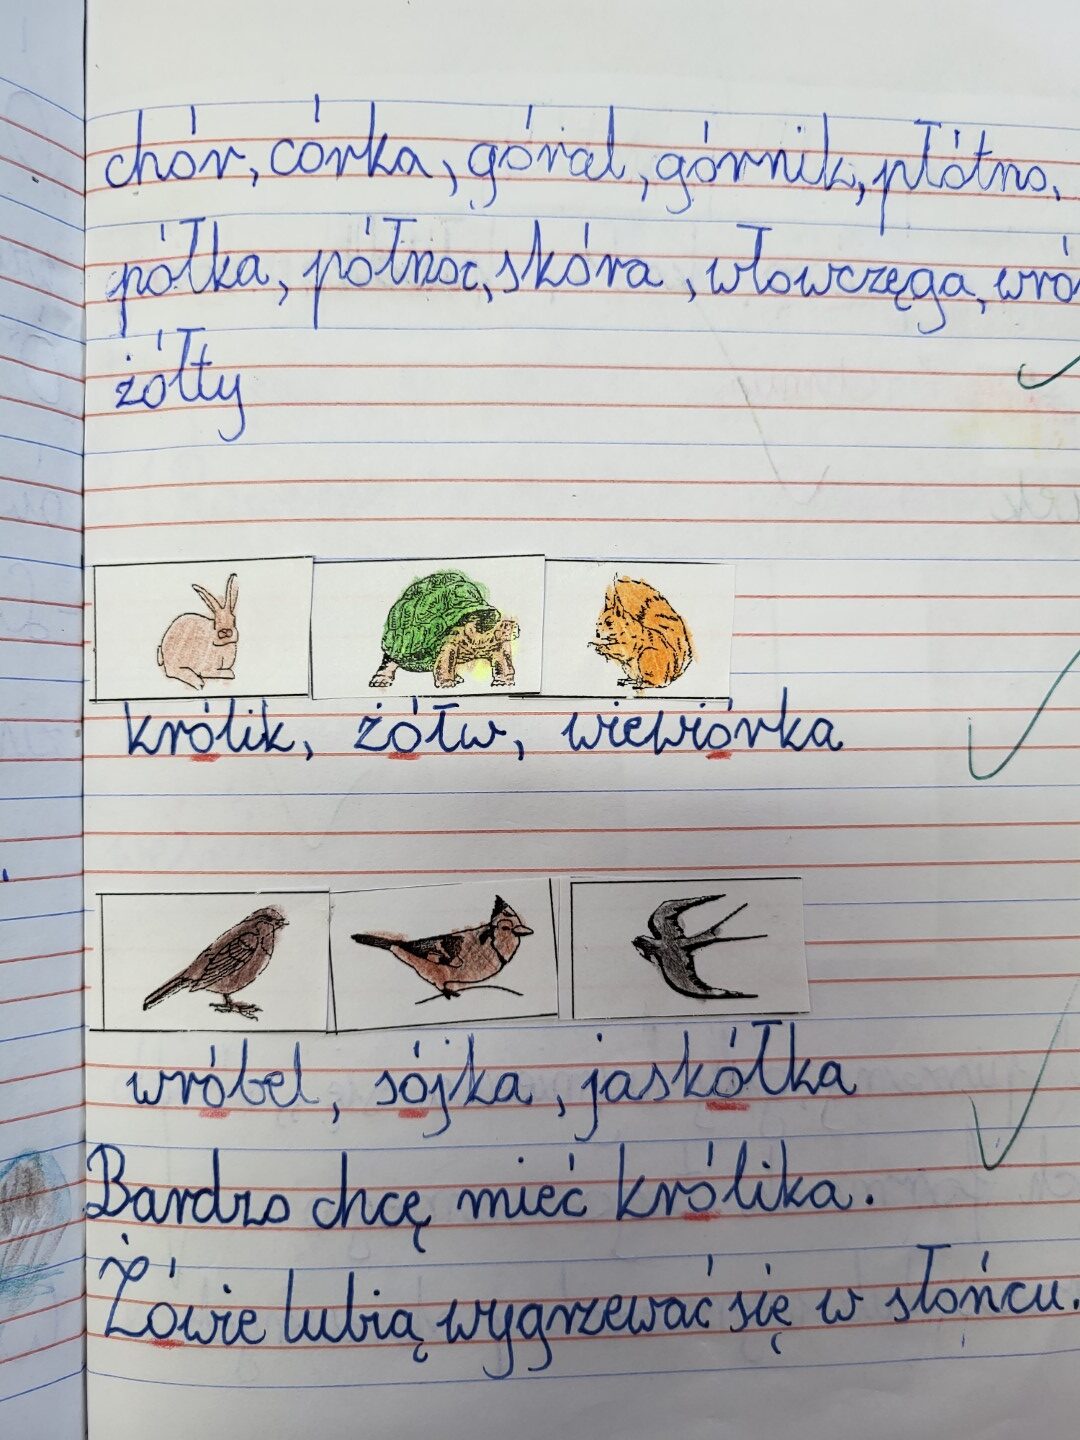 chór, córka, góral, górnik, płótno,
półka, północ, skóra, włowczęga, wró
żółty
królik, żółw, wiewiórka
wróbel, sójka, jaskółka
Bardzo chcę mieć królika.
Żówie lubią wygrzewać się w słońcu.